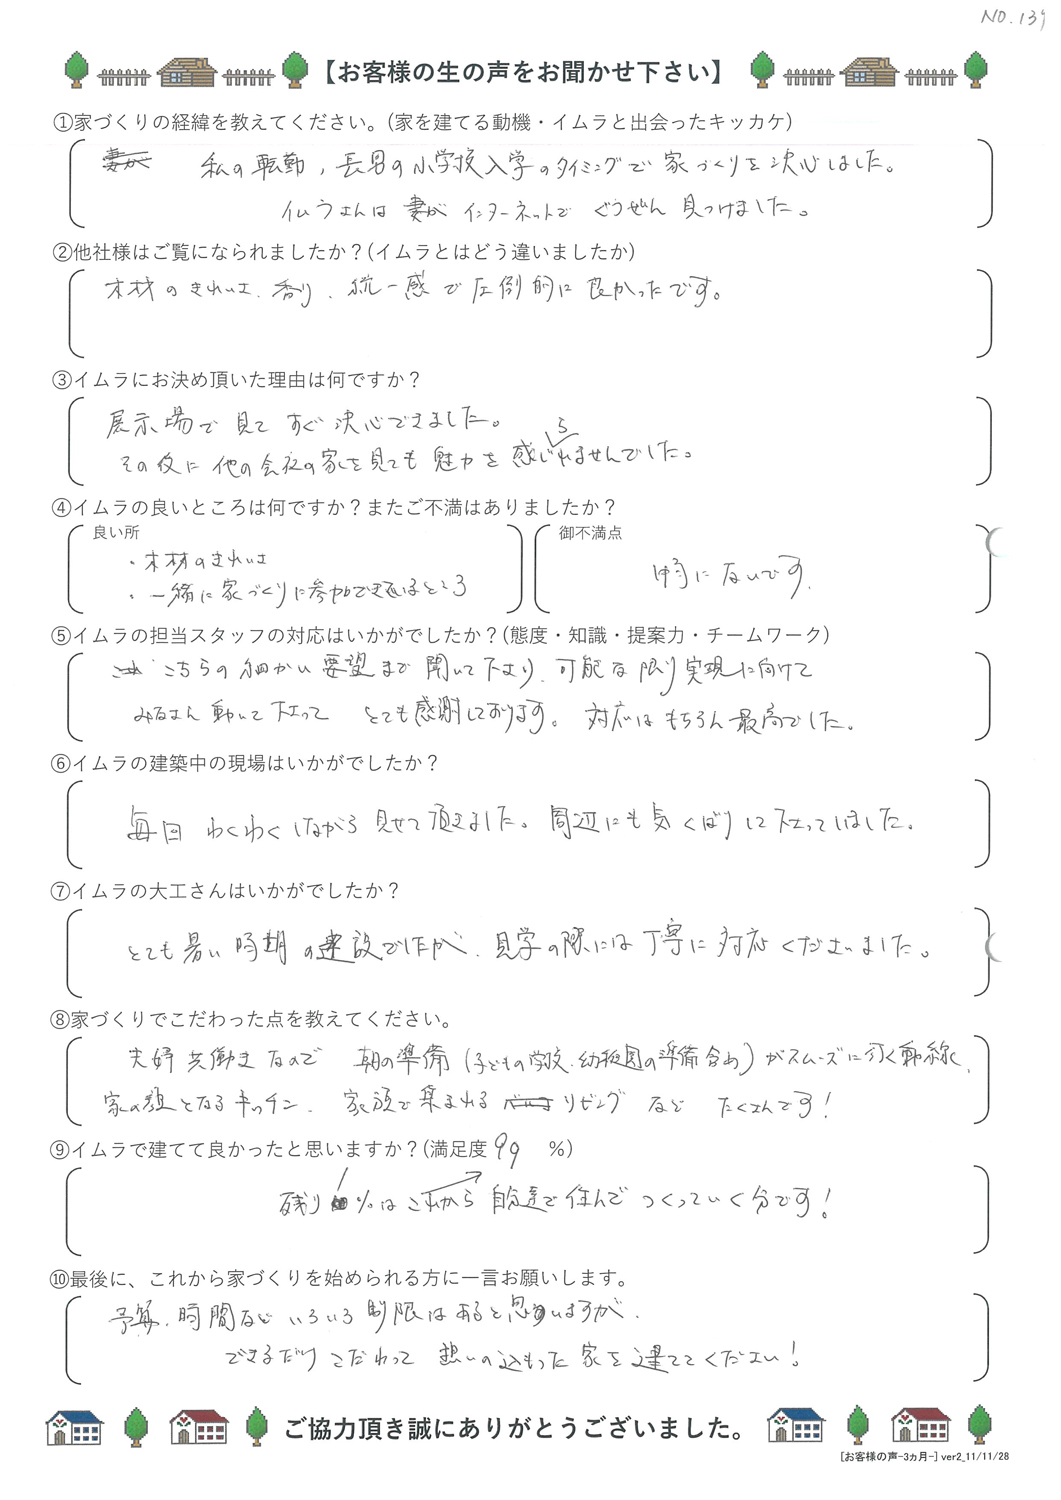 NO.139
【お客様の生の声をお聞かせ下さい】
①家づくりの経緯を教えてください。(家を建てる動機・イムラと出会ったキッカケ)
私の転勤、長男の小学校入学のタイミングで家づくりを決心しました。
イムラさんは妻がインターネットでぐうぜん見つけました。
②他社様はご覧になられましたか？(イムラとはどう違いましたか)
木材のきれいさ、香り、統一感で圧倒的に良かったです。
③イムラにお決め頂いた理由は何ですか？
展示場で見てすぐ決心できました。
その後に他の会社の家を見ても魅力を感じられませんでした。
④イムラの良いところは何ですか？またご不満はありましたか？
良い所
・木材のきれいさ
・一緒に家づくりに参加できるところ
御不満点
特にないです。
⑤イムラの担当スタッフの対応はいかがでしたか？(態度・知識・提案力・チームワーク)
こちらの細かい要望まで聞いて下さり、可能な限り実現に向けて
みなさん動いて下さって とても感謝しております。対応はもちろん最高でした。
⑥イムラの建築中の現場はいかがでしたか？
毎回わくわくしながら見せて頂きました。周辺にも気くばりして下さってしました。
⑦イムラの大工さんはいかがでしたか？
とても暑い時期の建設でしたが、見学の際には丁寧に対応くださいました。
⑧家づくりでこだわった点を教えてください。
夫婦共働きなので 朝の準備(子どもの学校、幼稚園の準備含め)がスムーズに行く動線、
家の顔となるキッチン、家族で集まれるリビングなど たくさんです！
⑨イムラで建てて良かったと思いますか？(満足度 99 %)
残り1%はこれから自分達で住んでつくっていく分です！
⑩最後に、これから家づくりを始められる方に一言お願いします。
予算、時間などいろいろ制限はあると思いますが、
できるだけこだわって想いの込もった家を建ててください！
ご協力頂き誠にありがとうございました。
[お客様の声-3ヵ月-] ver2_11/11/28